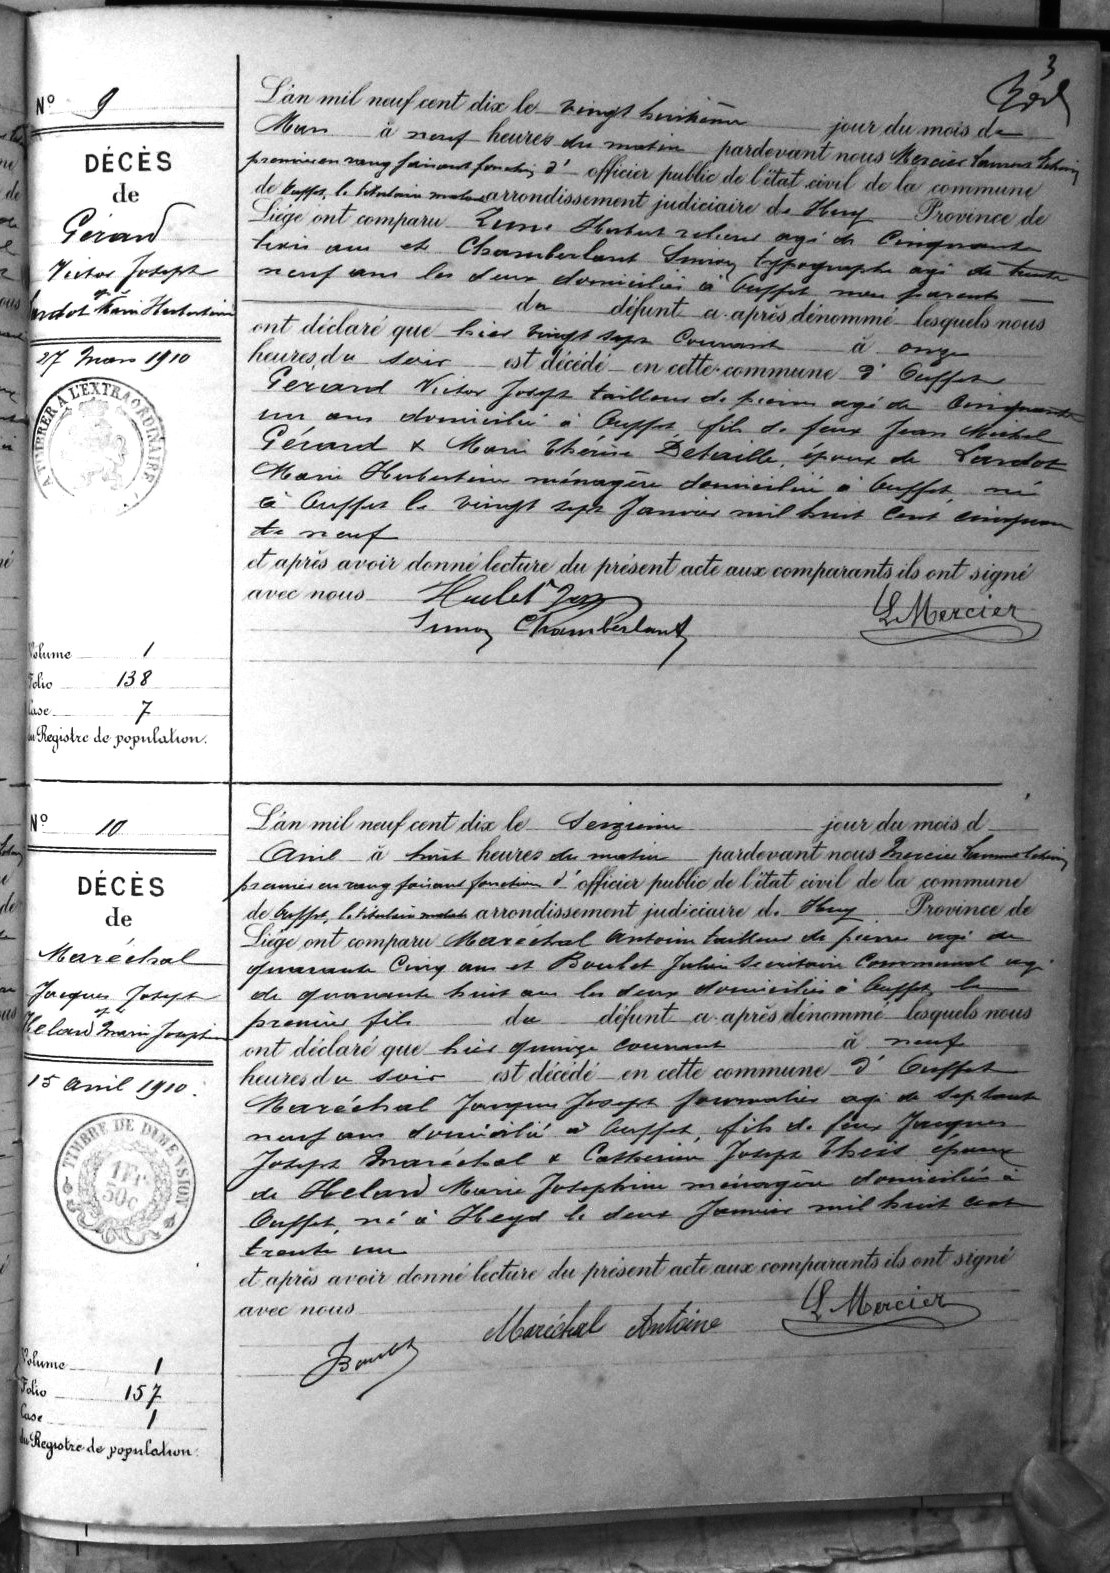 3
N° 9
DÉCÈS
de
Gérard
Victor Joseph
ép.
Lardot Marie Hubertine
27 Mars 1910
A TIMBRER A L'EXTRAORDINAIRE
Volume 1
Folio 138
Case 7
du Registre de population.
L'an mil neuf cent dix le vingt huitième jour du mois de
Mars à neuf heures du matin pardevant nous Mercier
premier en rang faisant fonction d' officier public de l'état civil de la commune
de Ouffet, le titulaire arrondissement judiciaire de Huy Province de
Liége ont comparu Hubert relieur agé de Cinquante
trois ans et Chamberlant Simon typographe agé de trente
neuf ans les deux domiciliés à Ouffet non parents
du défunt ci-après dénommé lesquels nous
ont déclaré que hier vingt sept Courant à onze
heures du soir est décédé en cette commune d' Ouffet
Gérard Victor Joseph tailleur de pierres agé de Cinquante
un ans domicilié à Ouffet fils de feux Jean Michel
Gérard & Marie Thérèse Detaille, époux de Lardot
Marie Hubertine ménagère domiciliée à Ouffet, né
à Ouffet le vingt sept Janvier mil huit cent cinquan
te neuf
et après avoir donné lecture du présent acte aux comparants ils ont signé
avec nous
L Mercier
Simon Chamberlant
N° 10
DÉCÈS
de
Maréchal
Jacques Joseph
ép.
Helard Marie Josephine
15 avril 1910.
TIMBRE DE DIMENSION
1Fr
50c
Volume 1
Folio 157
Case 1
du Registre de population.
L'an mil neuf cent dix le Seizième jour du mois d
Avril à huit heures du matin pardevant nous Mercier
premier en rang faisant fonction d' officier public de l'état civil de la commune
de Ouffet, le titulaire arrondissement judiciaire de Huy Province de
Liége ont comparu Maréchal Antoine tailleur de pierres agé de
quarante Cinq ans et Boulet Julien Secrétaire Communal agé
de quarante huit ans les deux domiciliés à Ouffet, le
premier fils du défunt ci-après dénommé lesquels nous
ont déclaré que hier quinze courant à neuf
heures du soir est décédé en cette commune d' Ouffet
Maréchal Jacques Joseph Journalier agé de septante
neuf ans domicilié à Ouffet, fils de feux Jacques
Joseph Maréchal & Catherine Joseph époux
de Helard Marie Josephine ménagère domiciliée à
Ouffet, né à Heyd le deux Janvier mil huit cent
trente un
et après avoir donné lecture du présent acte aux comparants ils ont signé
avec nous
Maréchal Antoine L Mercier
JBoulet